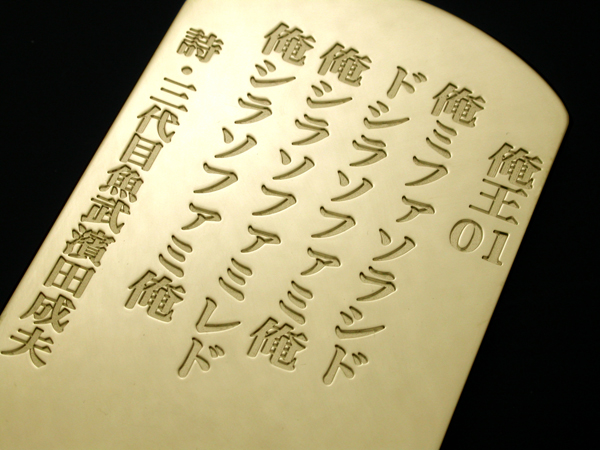 俺王01
俺ミファソラシド
ドシラソファミ俺
俺シラソファミレド
俺シラソファミ俺
詩・三代目魚武濱田成夫